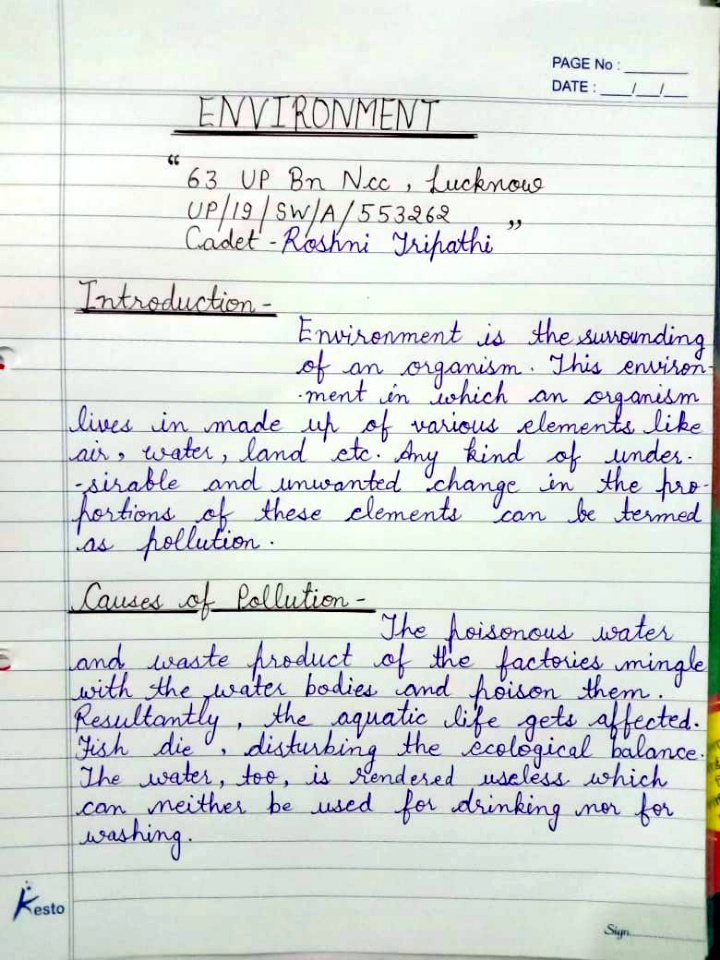 PAGE No : ________
DATE : ___/__/__
ENVIRONMENT
“ 63 UP Bn Ncc , Lucknow
UP/19/SW/A/553262
Cadet - Roshni Tripathi ”
Introduction -
Environment is the surrounding
of an organism. This environ-
-ment in which an organism
lives in made up of various elements like
air, water, land etc. Any kind of under-
-sirable and unwanted change in the pro-
portions of these elements can be termed
as pollution.
Causes of Pollution -
The poisonous water
and waste product of the factories mingle
with the water bodies and poison them.
Resultantly, the aquatic life gets affected.
Fish die , disturbing the ecological balance.
The water, too, is rendered useless which
can neither be used for drinking nor for
washing.
Kesto
Sign